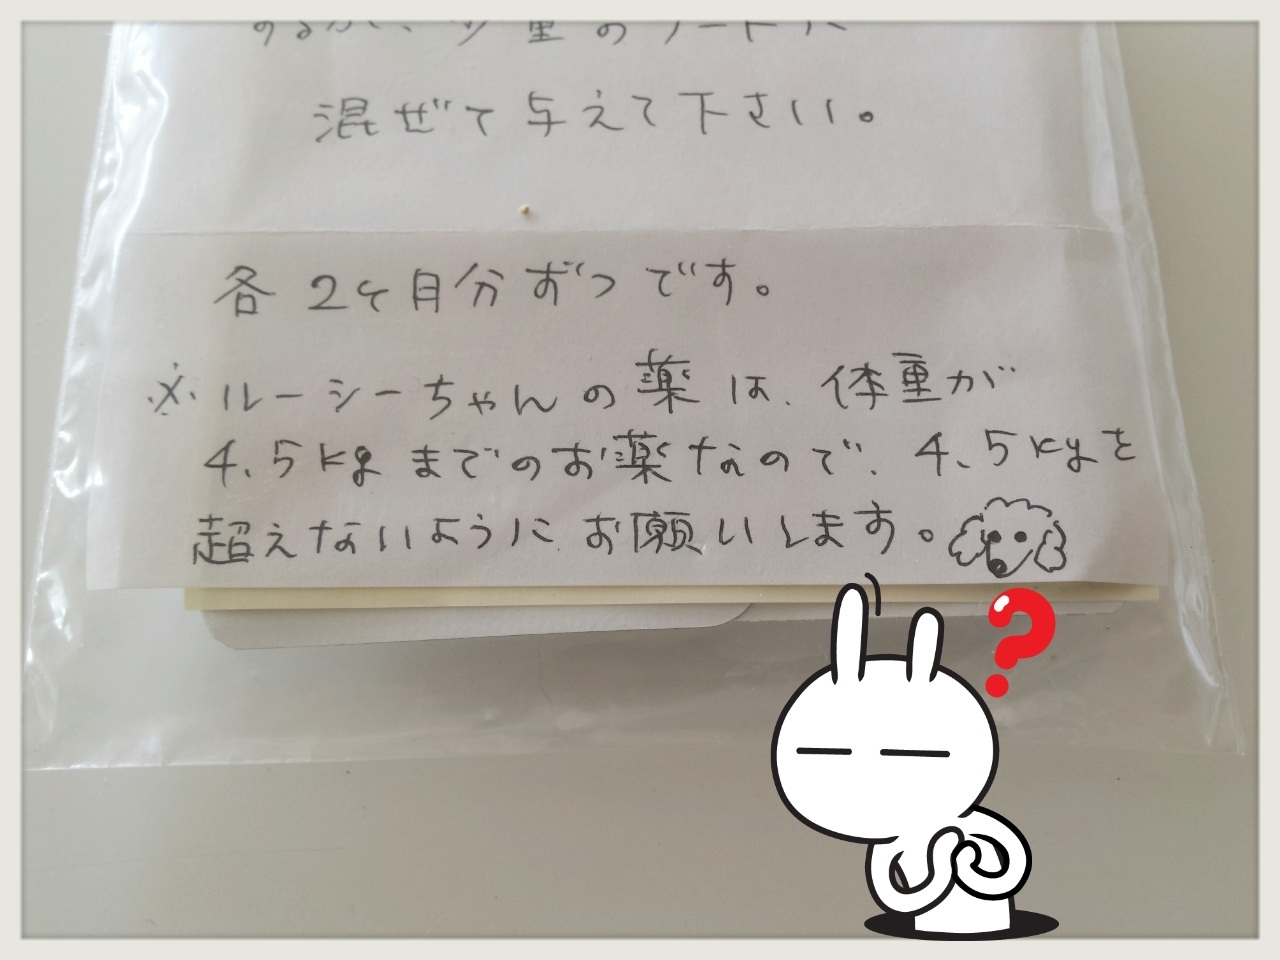 するか、少量のフードに
混ぜて与えて下さい。
各2ヶ月分ずつです。
※ルーシーちゃんの薬は、体重が
4.5kgまでのお薬なので、4.5kgを
超えないようにお願いします。
?